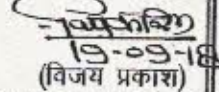 19-09-18
(विजय प्रकाश)